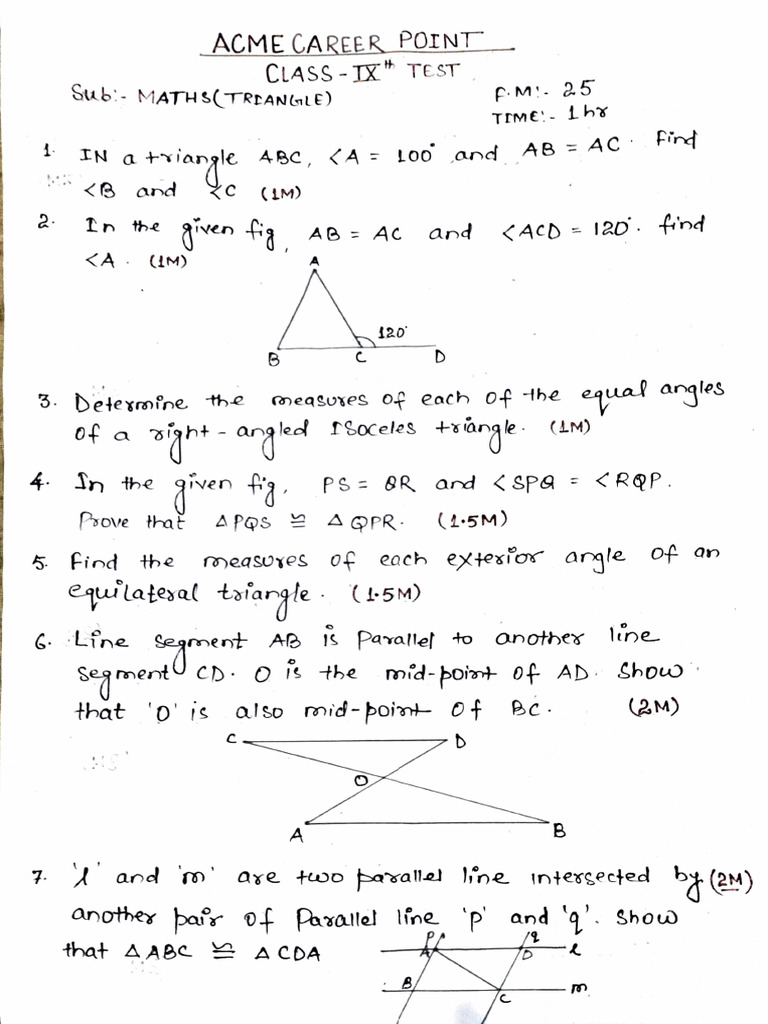 ACME CAREER POINT
CLASS - IXth TEST
Sub:- MATHS(TRIANGLE)
F.M:- 25
TIME:- 1 hr
1. IN a triangle ABC, <A = 100° and AB = AC. Find
<B and <C (1M)
2. In the given fig, AB = AC and <ACD = 120°. find
<A. (1M)
A
120°
B C D
3. Determine the measures of each of the equal angles
of a right-angled Isoceles triangle. (1M)
4. In the given fig, PS = QR and <SPQ = <RQP.
Prove that △PQS ≅ △QPR. (1.5M)
5. Find the measures of each exterior angle of an
equilateral triangle. (1.5M)
6. Line segment AB is Parallel to another line
segment CD. O is the mid-point of AD. Show
that 'O' is also mid-point of BC. (2M)
C D
O
A B
7. 'l' and 'm' are two parallel line intersected by (2M)
another pair of Parallel line 'p' and 'q'. Show
that △ABC ≅ △CDA
P q
A D l
B C m